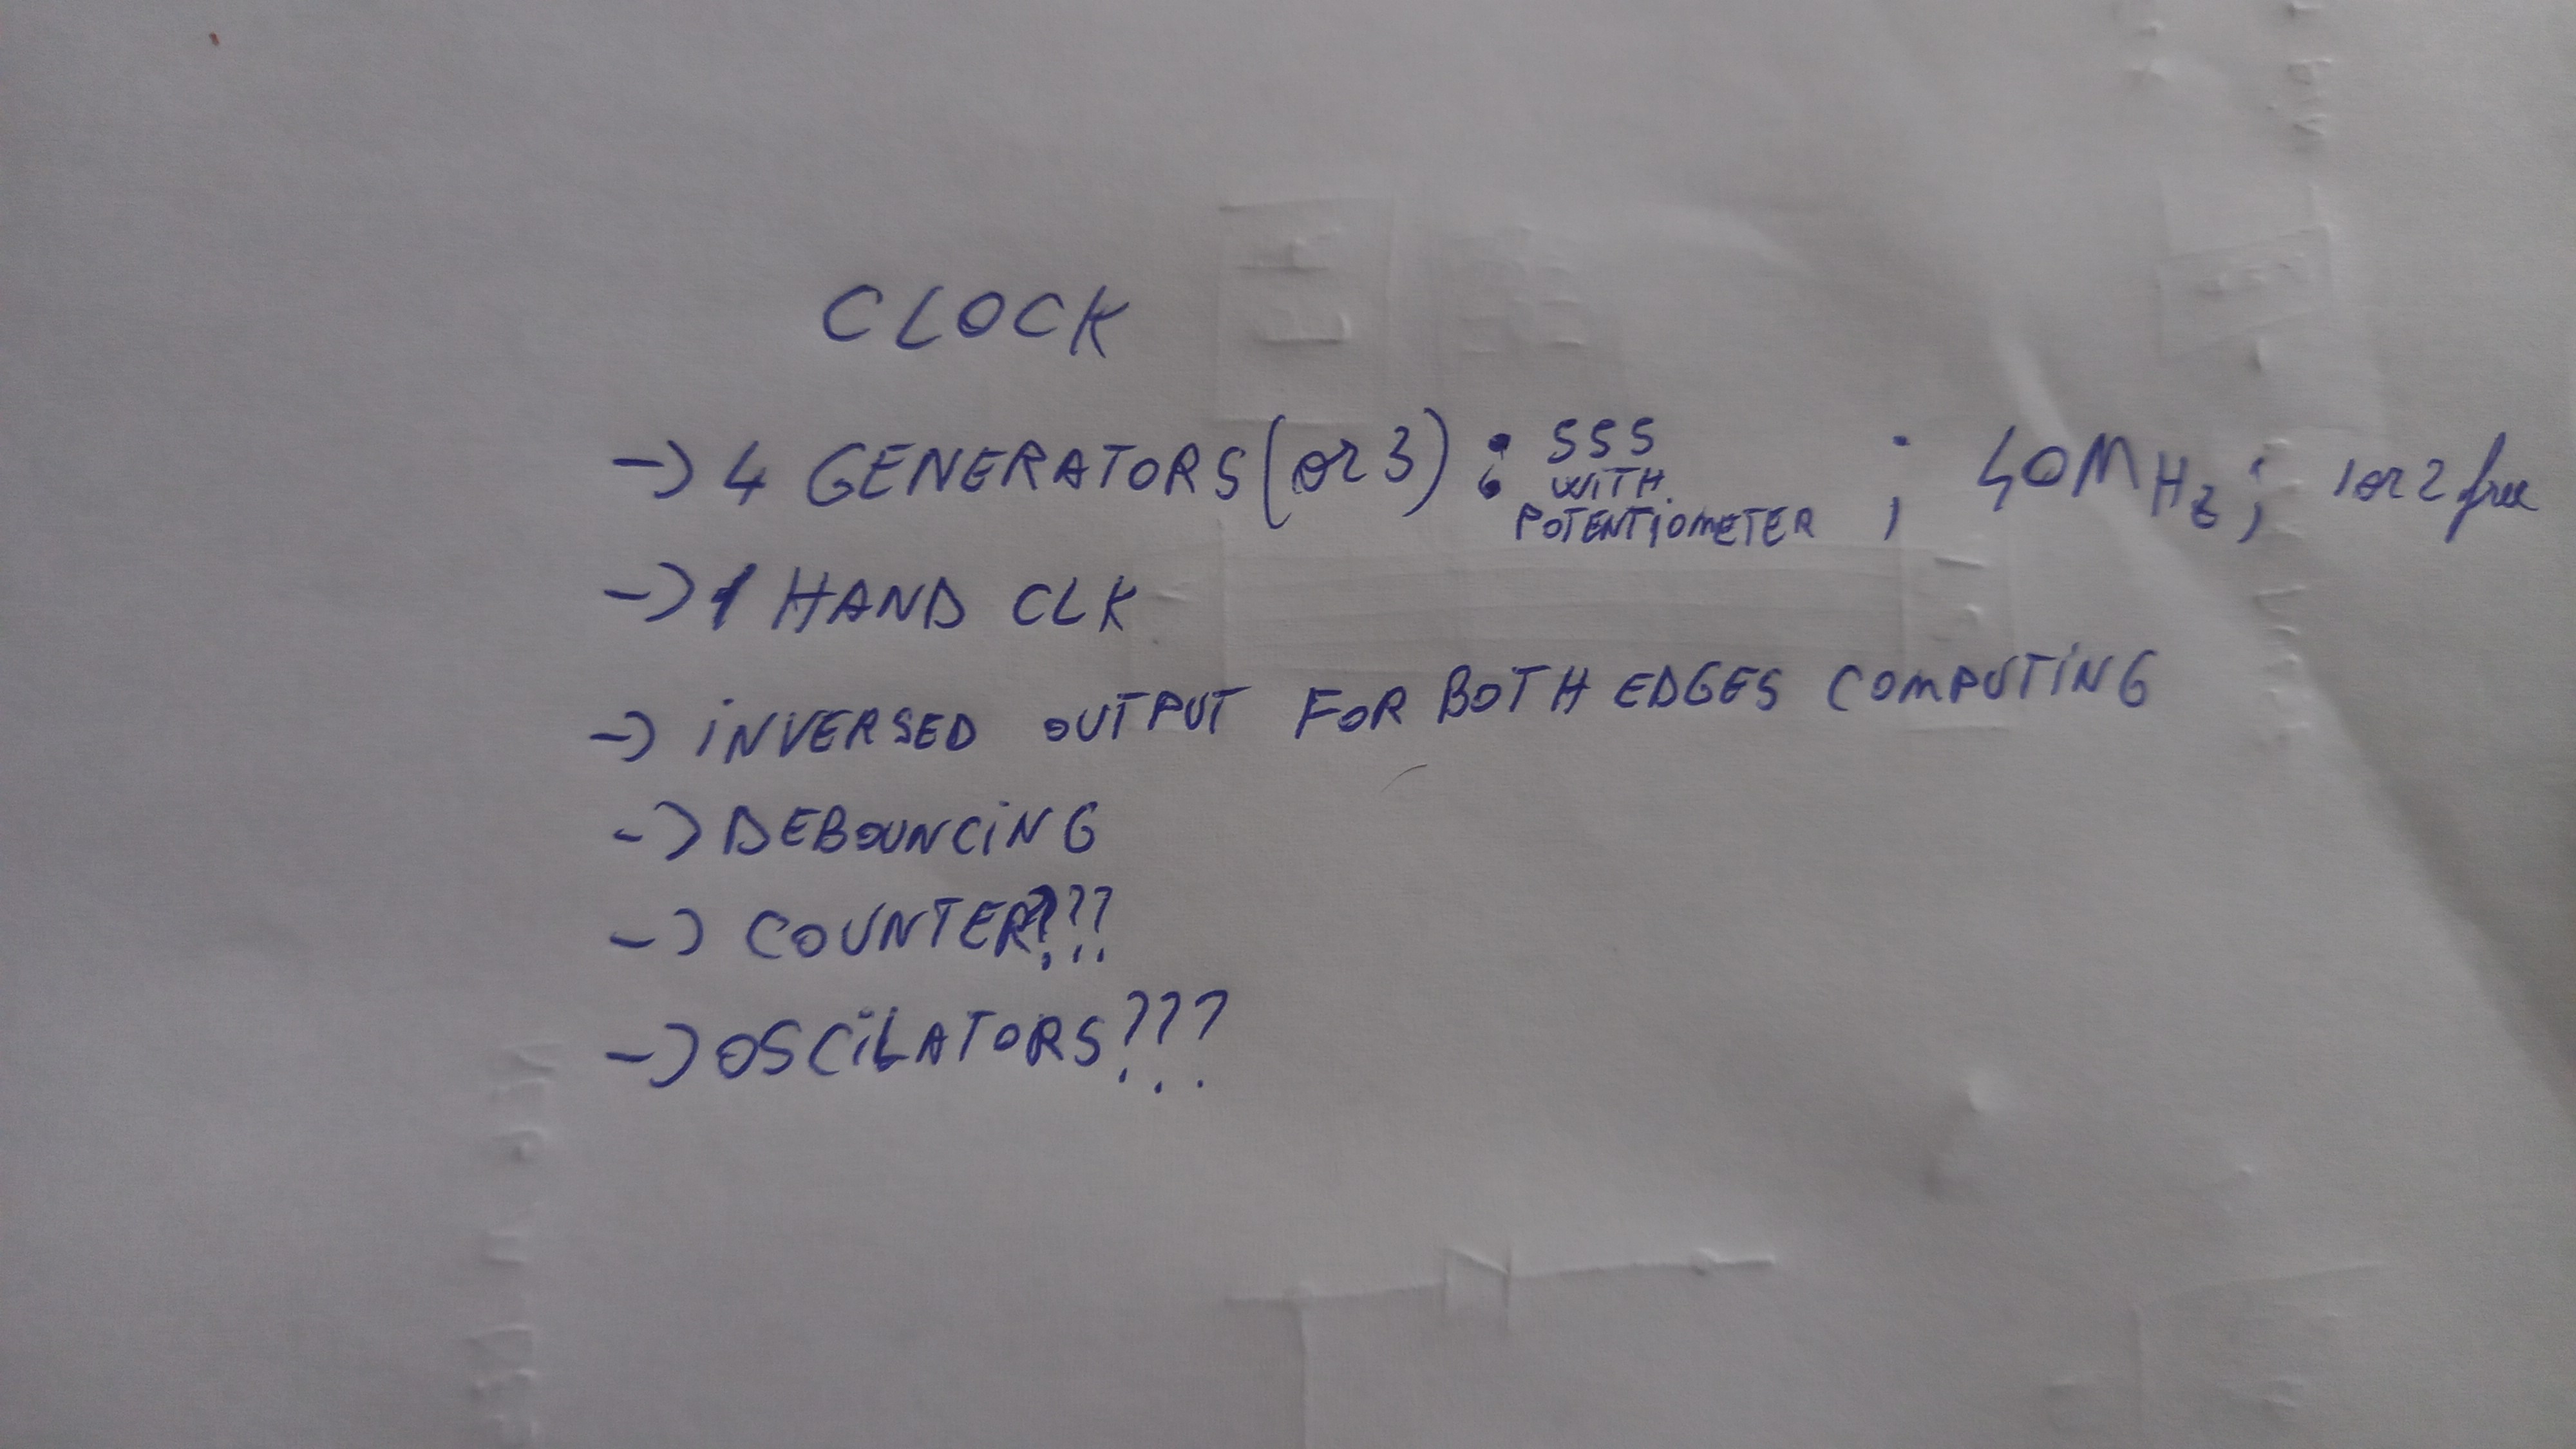 CLOCK
-> 4 GENERATORS (or 3): 555 WITH POTENTIOMETER ; 40MHz ; 1 or 2 free
-> 1 HAND CLK
-> INVERSED OUTPUT FOR BOTH EDGES COMPUTING
-> DEBOUNCING
-> COUNTER???
-> OSCILATORS???